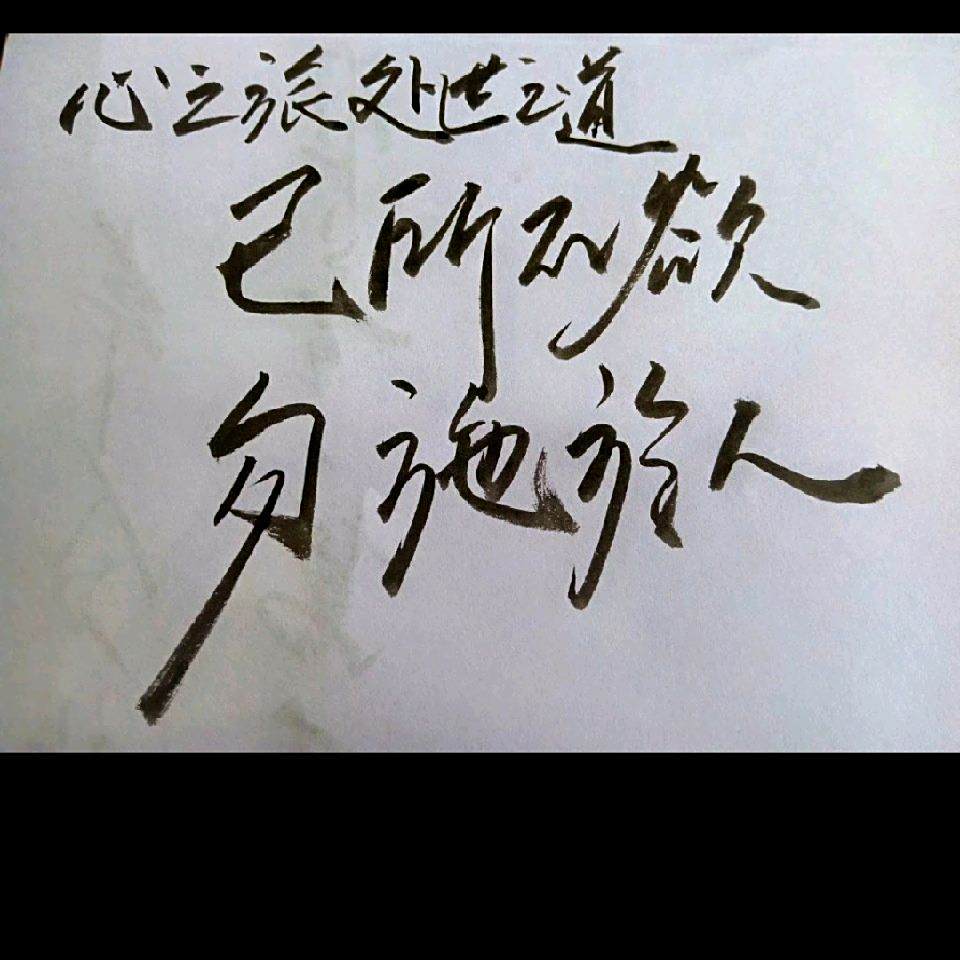 心之旅处世之道
己所不欲
勿施於人